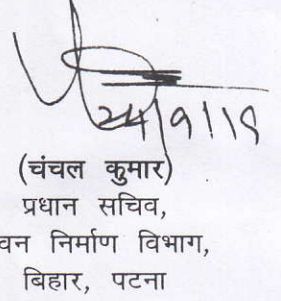 24/9/19
(चंचल कुमार)
प्रधान सचिव,
वन निर्माण विभाग,
बिहार, पटना